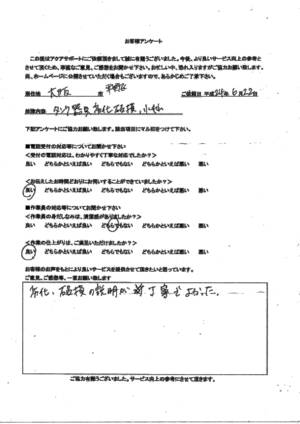 お客様アンケート
この度はアクアサポートにご依頼頂きまして誠に有難うございました。今後、より良いサービス向上の参考と
させて頂くため、率直なご意見、ご感想をお聞かせ下さい。お忙しい中、恐れ入りますがご協力お願い致します。
尚、ホームページに公開させていただく場合もございますので、あらかじめご了承下さい。
居住地 大阪 市 平野区 ご依頼日 平成24年6月22日
故障内容 タンク器具劣化破損
下記アンケートにご協力お願い致します。該当項目にマル印をつけて下さい。
■電話受付の対応等についてお聞かせ下さい
<受付の電話対応は、わかりやすく丁寧な対応でしたか?>
良い どちらかといえば良い どちらでもない どちらかといえば悪い 悪い
<お伝えしたお時間どおりにお伺いすることができていましたか?>
良い どちらかといえば良い どちらでもない どちらかといえば悪い 悪い
■作業員の対応等についてお聞かせ下さい
<作業員の身だしなみは、清潔感がありましたか?>
良い どちらかといえば良い どちらでもない どちらかといえば悪い 悪い
<作業の仕上がりは、ご満足いただけましたか?>
良い どちらかといえば良い どちらでもない どちらかといえば悪い 悪い
お客様のお声をもとにより良いサービスを提供させて頂きたいと思っています。
ご意見、ご感想等、一言お願い致します
劣化、破損の説明が 丁寧でよかった。
ご協力有難うございました。サービス向上の参考にさせて頂きます。